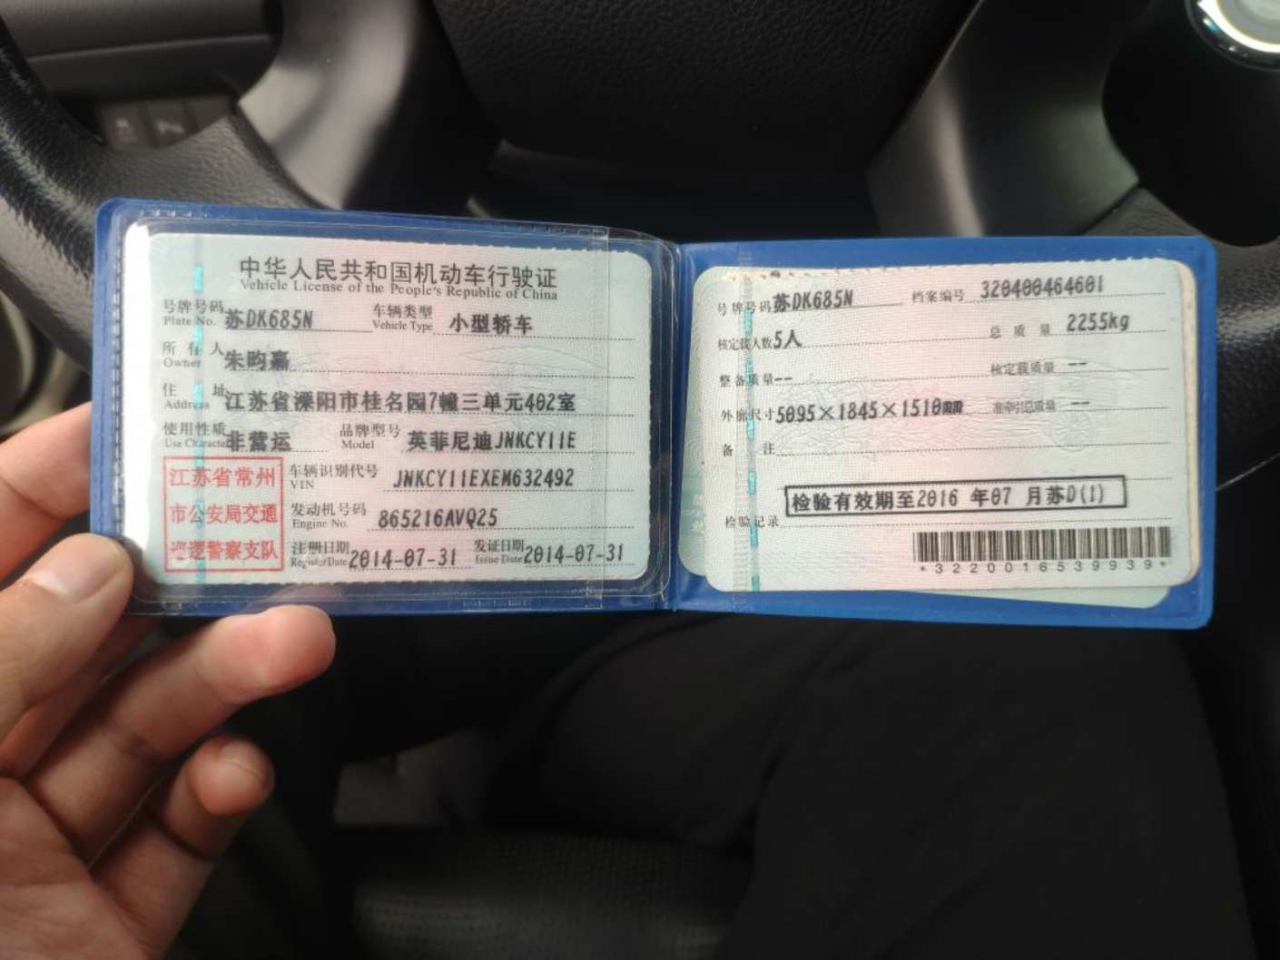 中华人民共和国机动车行驶证
Vehicle License of the People's Republic of China
号牌号码 苏DK685N 车辆类型 小型轿车
Plate No. Vehicle Type
所有人 朱昀嘉
Owner
住址 江苏省溧阳市桂名园7幢三单元402室
Address
使用性质 非营运 品牌型号 英菲尼迪JNKCY11E
Use Character Model
江苏省常州
市公安局交通
巡逻警察支队
车辆识别代号 JNKCY11EXEM632492
VIN
发动机号码 865216AVQ25
Engine No.
注册日期 2014-07-31 发证日期 2014-07-31
Register Date Issue Date
号牌号码 苏DK685N 档案编号 320400464601
核定载人数 5人 总质量 2255kg
整备质量 -- 核定载质量 --
外廓尺寸 5095×1845×1510mm 准牵引总质量 --
备注
检验有效期至2016 年07 月苏D(1)
检验记录
*3220016539939*